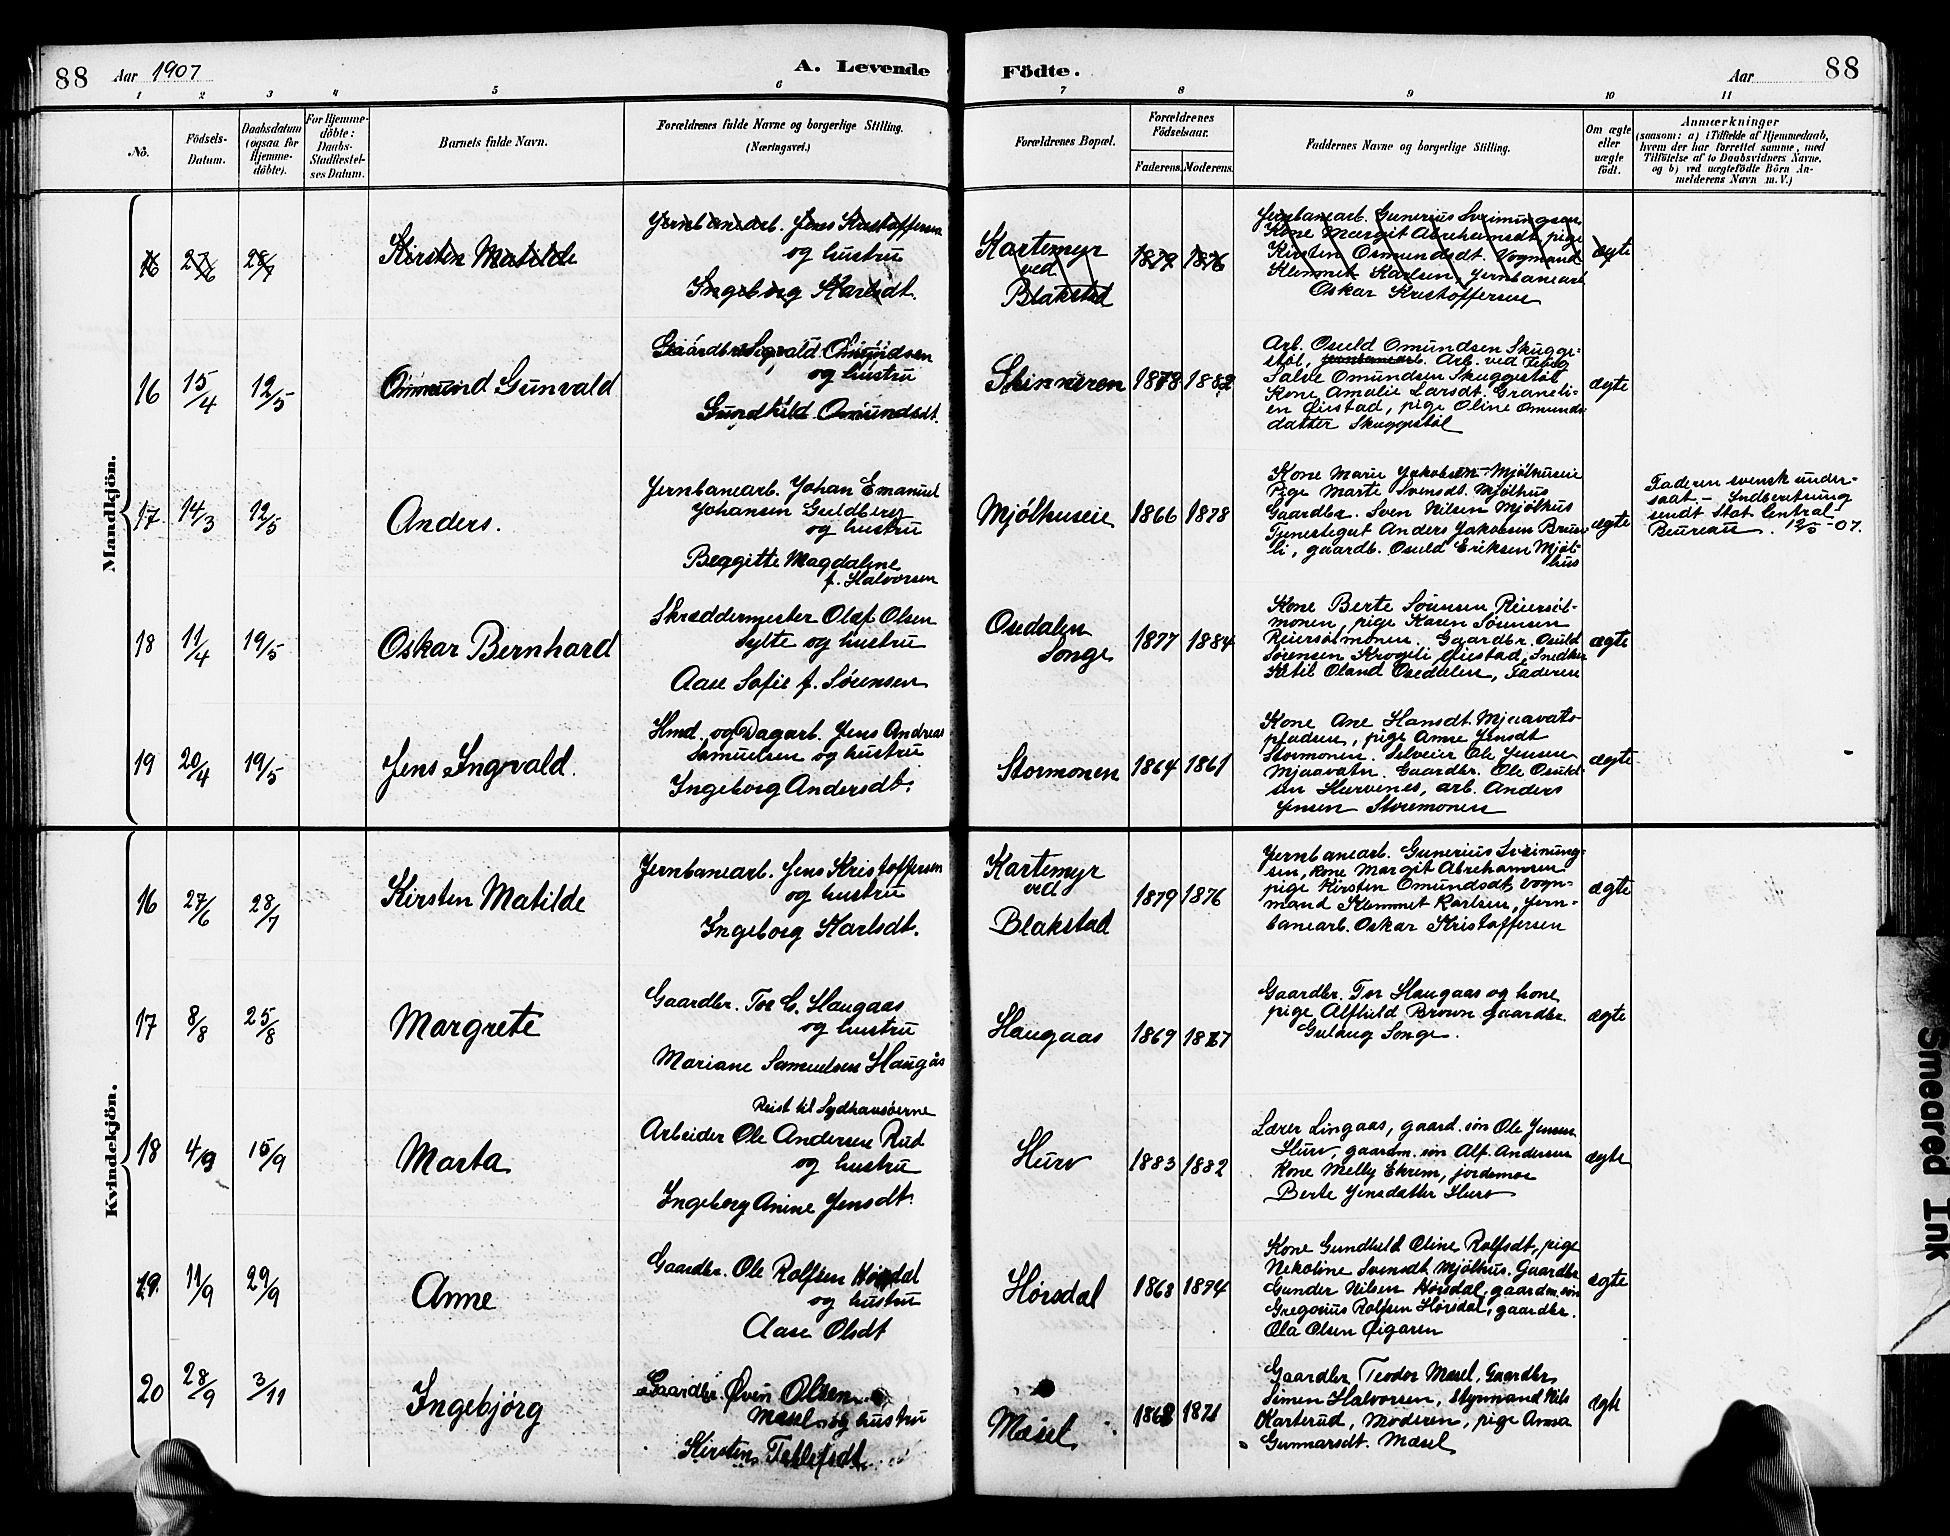 88 Aar 1907 A. Levende Födte. Aar 88
1 2 3 4 5 6 7 8 9 10 11
No.
Födsels-
Datum.
Daabsdatum
(ogsaa for
Hjemme-
döbte).
For Hjemme-
döbte:
Daabs-
Stadfæstel-
ses Datum.
Barnets fulde Navn.
Forældrenes fulde Navne og borgerlige Stilling.
(Næringsvei.)
Forældrenes Bopæl.
Forældrenes
Födselsaar.
Faderens. Moderens.
Faddernes Navne og borgerlige Stilling.
Om ægte
eller
uægte
födt.
Anmærkninger
(saasom: a) i Tilfælde af Hjemmedaab,
hvem der har forrettet samme, med
Tilföielse af to Daabsvidners Navne,
og b) ved uægtefödte Börn An-
melderens Navn m. V.)
Mandkjön.
16 27/6 28/7
Kirsten Matilde
Jernbanearb. Jens Kristoffersen
og hustru
Ingeborg Karlsdt.
Kartemyr
ved
Blakstad
1879 1876
Jernbanearb. Gunerius Sveinungsen
Kone Margit Abrehamsdt. pige
Kirsten Osmundsdt. Vogmand
Klemmet Karlsen, Jernbanearb
Oskar Kristoffersen
ægte
16 15/4 12/5
Ommund Gunvald
Gaardbr. Sigvald Omundsen
og hustru
Gundhild Omundsdt.
Skinneren
1878 1882
Arb. Osuld Omundsen Skugge-
støl, jernbanearb. Arb. ved
Salve Omundsen Skuggestøl
Kone Amalie Larsdt. Graneli-
en Øiestad, pige Oline Omunds-
datter Skuggestøl
ægte
17 14/3 12/5
Anders.
Jernbanearb. Johan Emanuel
Johansen Guldberg
og hustru
Beggitte Magdalene
f. Halvorsen
Mjølhuseie
1866 1878
Kone Marie Jakobsen Mjølhuseie
Pige Marte Svensdt. Mjølhus
Gaardbr. Sven Nilsen Mjølhus
Tjenestegut Anders Jakobsen Bruse-
li, gaardb. Osuld Eriksen Mjøl-
hus
ægte
Faderen svensk under-
saat – Indberetning
sendt Stat. Central-
Beureau. 12/5 -07.
18 11/4 19/5
Oskar Bernhard
Skræddermester Olaf Olsen
Sylte og hustru
Aase Sofie f. Sørensen
Osedalen
Songe
1877 1884
Kone Berte Sørensen Reiersøl-
monen, pige Karen Sørensen
Reiersølmonen. Gaardbr. Osuld
Sørensen Krogeli Øiestad, Snedker
Ketil Oland Osedalen, Faderen
ægte
19 20/4 19/5
Jens Ingvald.
Hmd. og Dagarb. Jens Andreas
Samuelsen og hustru
Ingeborg Andersdt.
Stormonen
1864 1861
Kone Ane Hansdt. Mjaavats-
, pige Anne Jensdt
Stormonen. Selveier Ole Jensen
Mjaavatn. Gaardbr. Ole Osuld-
sen Hurvenes, arb. Anders
Jensen Storemonen
ægte
Kvindekjön.
16 27/6 28/7
Kirsten Matilde
Jernbanearb. Jens Kristoffersen
og hustru
Ingeborg Karlsdt.
Kartemyr
ved
Blakstad
1879 1876
Jernbanearb. Gunerius Sveinung-
sen, kone Margit Abrehamsen
pige Kirsten Omundsdt, vogn-
mand Klemmet Karlsen, jern-
banearb. Oskar Kristoffersen
ægte
17 8/8 25/8
Margrete
Gaardbr. Tor C. Haugaas
og hustru
Mariane Samuelsen Haugås
Haugaas
1869 1877
Gaardbr. Tor Haugaas og kone
pige Alfhild Brown gaardbr.
Gulaug Songe.
ægte
18 4/9 15/9
Marta
Reist til Sydhavsøerne
Arbeider Ole Andersen Rud
og hustru
Ingeborg Anine Jensdt.
Hurv
1883 1882
Lærer Lingaas, gaard. søn Ole Jensen
Hurv, gaardm. søn Alf. Andersen
Kone Melby Ekrem, jordemor
Berte Jensdatter Hurv
ægte
19 11/9 29/9
Anne
Gaardbr. Ole Rolfsen Hørsdal
og hustru
Aase Olsdt
Hørsdal
1868 1874
Kone Gundhild Oline Rolfsdt, pige
Nekoline Svensdt Mjølhus. Gaardbr
Gunder Nilsen Hørsdal, gaardm. søn
Gregorius Rolfsen Hørsdal, gaardbr.
Ola Olsen Øigaren
ægte
20 28/9 3/11
Ingebjørg
Gaardbr. Øven Olsen
Mæsel og hustru
Kirsten Tellefsdt.
Mæsel
1868 1871
Gaardbr Teodor Mæsel, Gaardbr
Simen Halvorsen, Styrmand Nils
Karterud, Moderen, pige Anna
Gunnarsdt. Mæsel
ægte
Smeared Ink